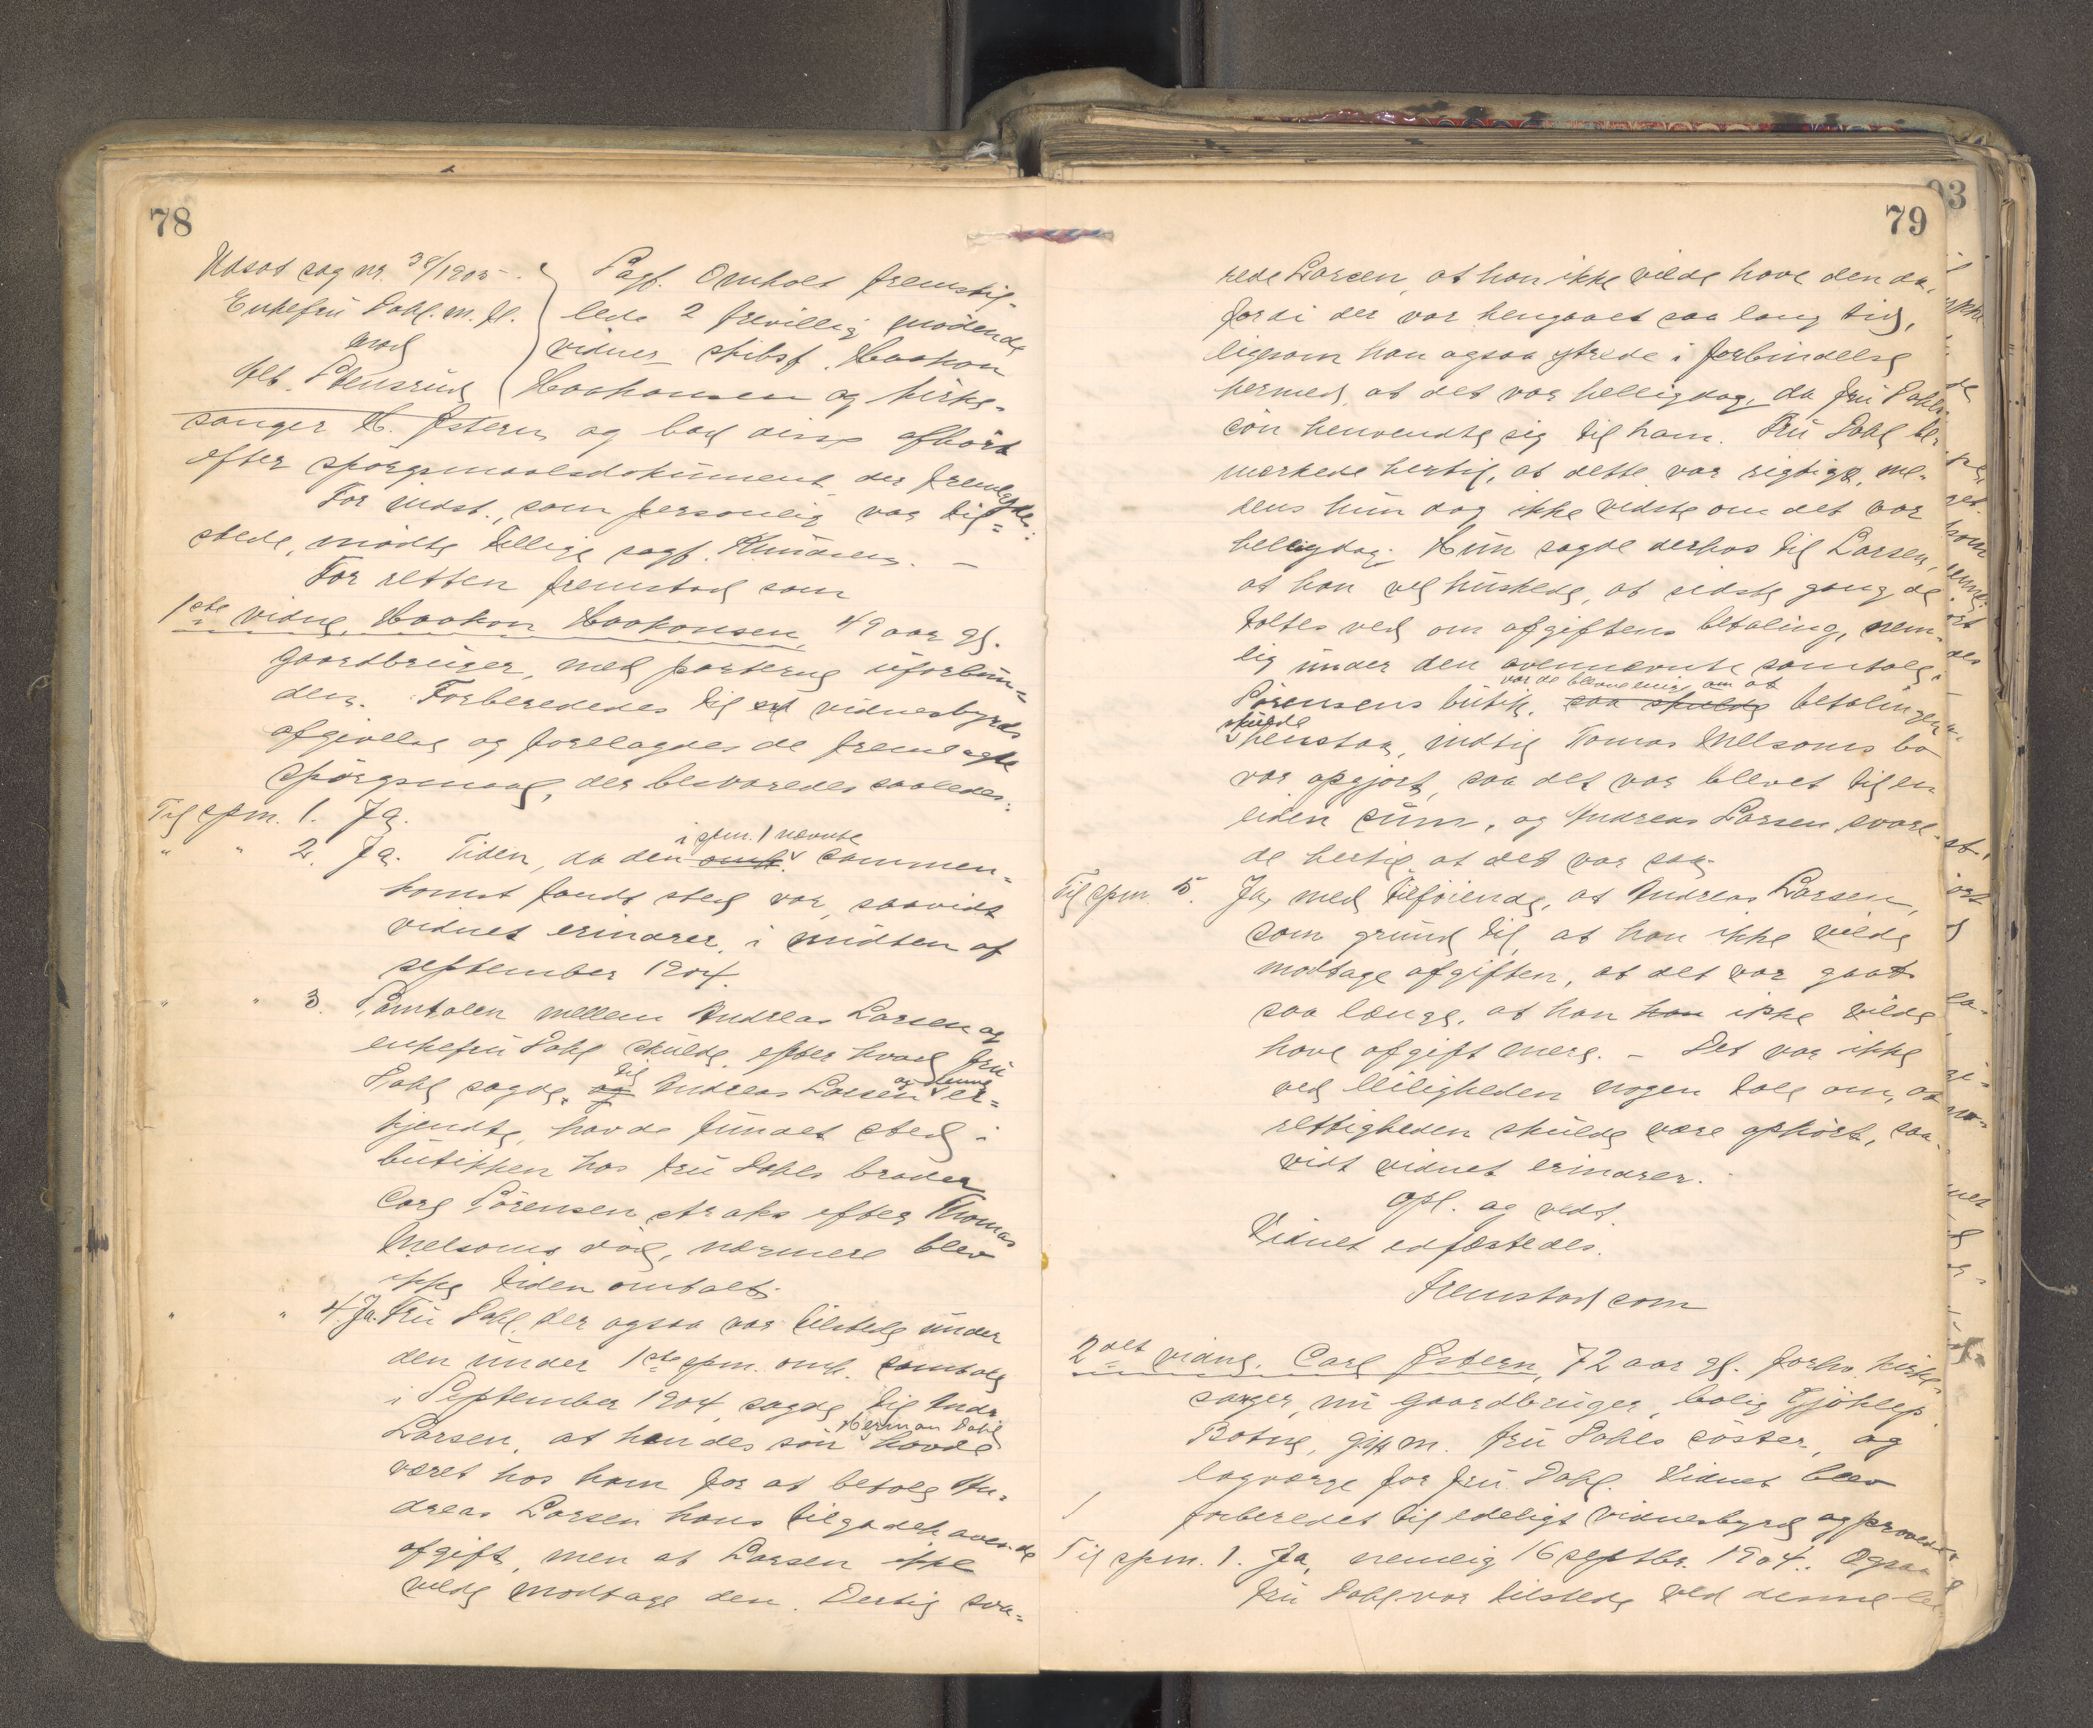 78
Udsat sag nr. 38/1905 -.
Enkefru Dahl m. fl.
mod
Alb. Stensrud
Sagf. Omholt fremstil-
lede 2 frevillig mødende
vidner skibsf. Haakon
Haakonsen og kirke-
sanger H. Østern og bad disse afhørt
efter spørgsmaalsdokument der fremlagdes:
For indst., som personlig var til-
stede, mødte tillige sagf. Knudsen. -
For retten fremstod som
1ste vidne, Haakon Haakonsen, 49 aar gl.
gaardbruger, med parterne uforbun-
den. Forberededes til vidnesbyrds
afgivelse og forelagdes de fremlagte
spørgsmaal, der besvaredes saaledes:
Til spm. 1. Ja.
" " 2. Ja. Tiden, da den omh. i spm. 1 nævnte sammen-
komst fandt sted var, saavidt
vidnet erindrer, i midten af
september 1904.
" " 3. Samtalen mellem Andreas Larsen og
enkefru Dahl skulde, efter hvad fru
Dahl sagde, og til Andreas Larsen og denne er-
kjendte, havde fundet sted i
butikken hos fru Dahls broder
Carl Sørensen straks efter Thomas
Melsoms død, nærmere blev
ikke tiden omtalt.
" " 4. Ja. Fru Dahl, der ogsaa var tilstede under
den under 1ste spm. omh. samtale
i September 1904, sagde til Andr.
Larsen, at hendes søn Herman Dahl havde
været hos ham for at betale An-
dreas Larsen hans tilgodehavende
afgift, men at Larsen ikke
vilde modtage den. Dertil sva-
79
rede Larsen, at han ikke vilde have den da,
fordi der var hengaaet saa lang tid,
ligesom han ogsaa ytrede i forbindelse
hermed, at det var helligdag, da fru Dahls
søn henvendte sig til ham. Fru Dahl be-
mærkede hertil, at dette var rigtigt, me-
dens hun dog ikke vidste om det var
helligdag. Hun sagde derhos til Larsen,
at han vel huskede, at sidste gang de
taltes ved om afgiftens betaling, nem-
lig under den ovennævnte samtale i
Sørensens butik, saa skulde var de blevne enige om at betalingen
skulde henstaa, indtil Tomas Melsoms bo
var opgjort, saa det var blevet til en
liden sum, og Andreas Larsen svare-
de hertil at det var saa.
Til spm. 5. Ja, med tilføiende, at Andreas Larsen,
som grund til, at han ikke vilde
modtage afgiften, at det var gaat
saa længe, at han han ikke vilde
have afgift mere. - Det var ikke
ved leiligheden nogen tale om, at
rettigheden skulde være ophørt, saa-
vidt vidnet erindrer.
Opl. og vedt.
Vidnet edfæstedes.
Fremstod som
2det vidne, Carl Østern, 72 aar gl. forhv. kirke-
sanger, nu gaardbruger, bolig Gjøklep
Botne, gift m. fru Dahls søster, og
lagværge for fru Dahl. Vidnet blev
forberedet til edeligt vidnesbyrd og provede
Til spm. 1. Ja, nemlig 16 septbr. 1904. Ogsaa
fru Dahl var tilstede ved denne lei-